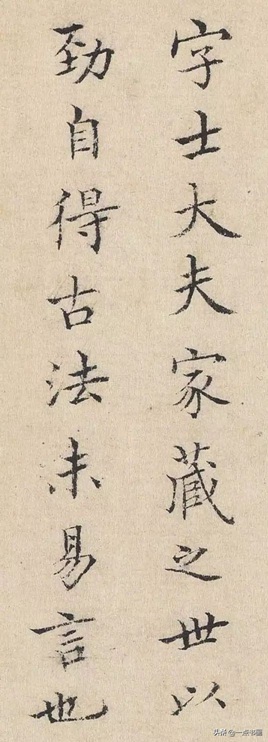 字士大夫家藏之世以
劲自得古法未易言也
头条@一点书画